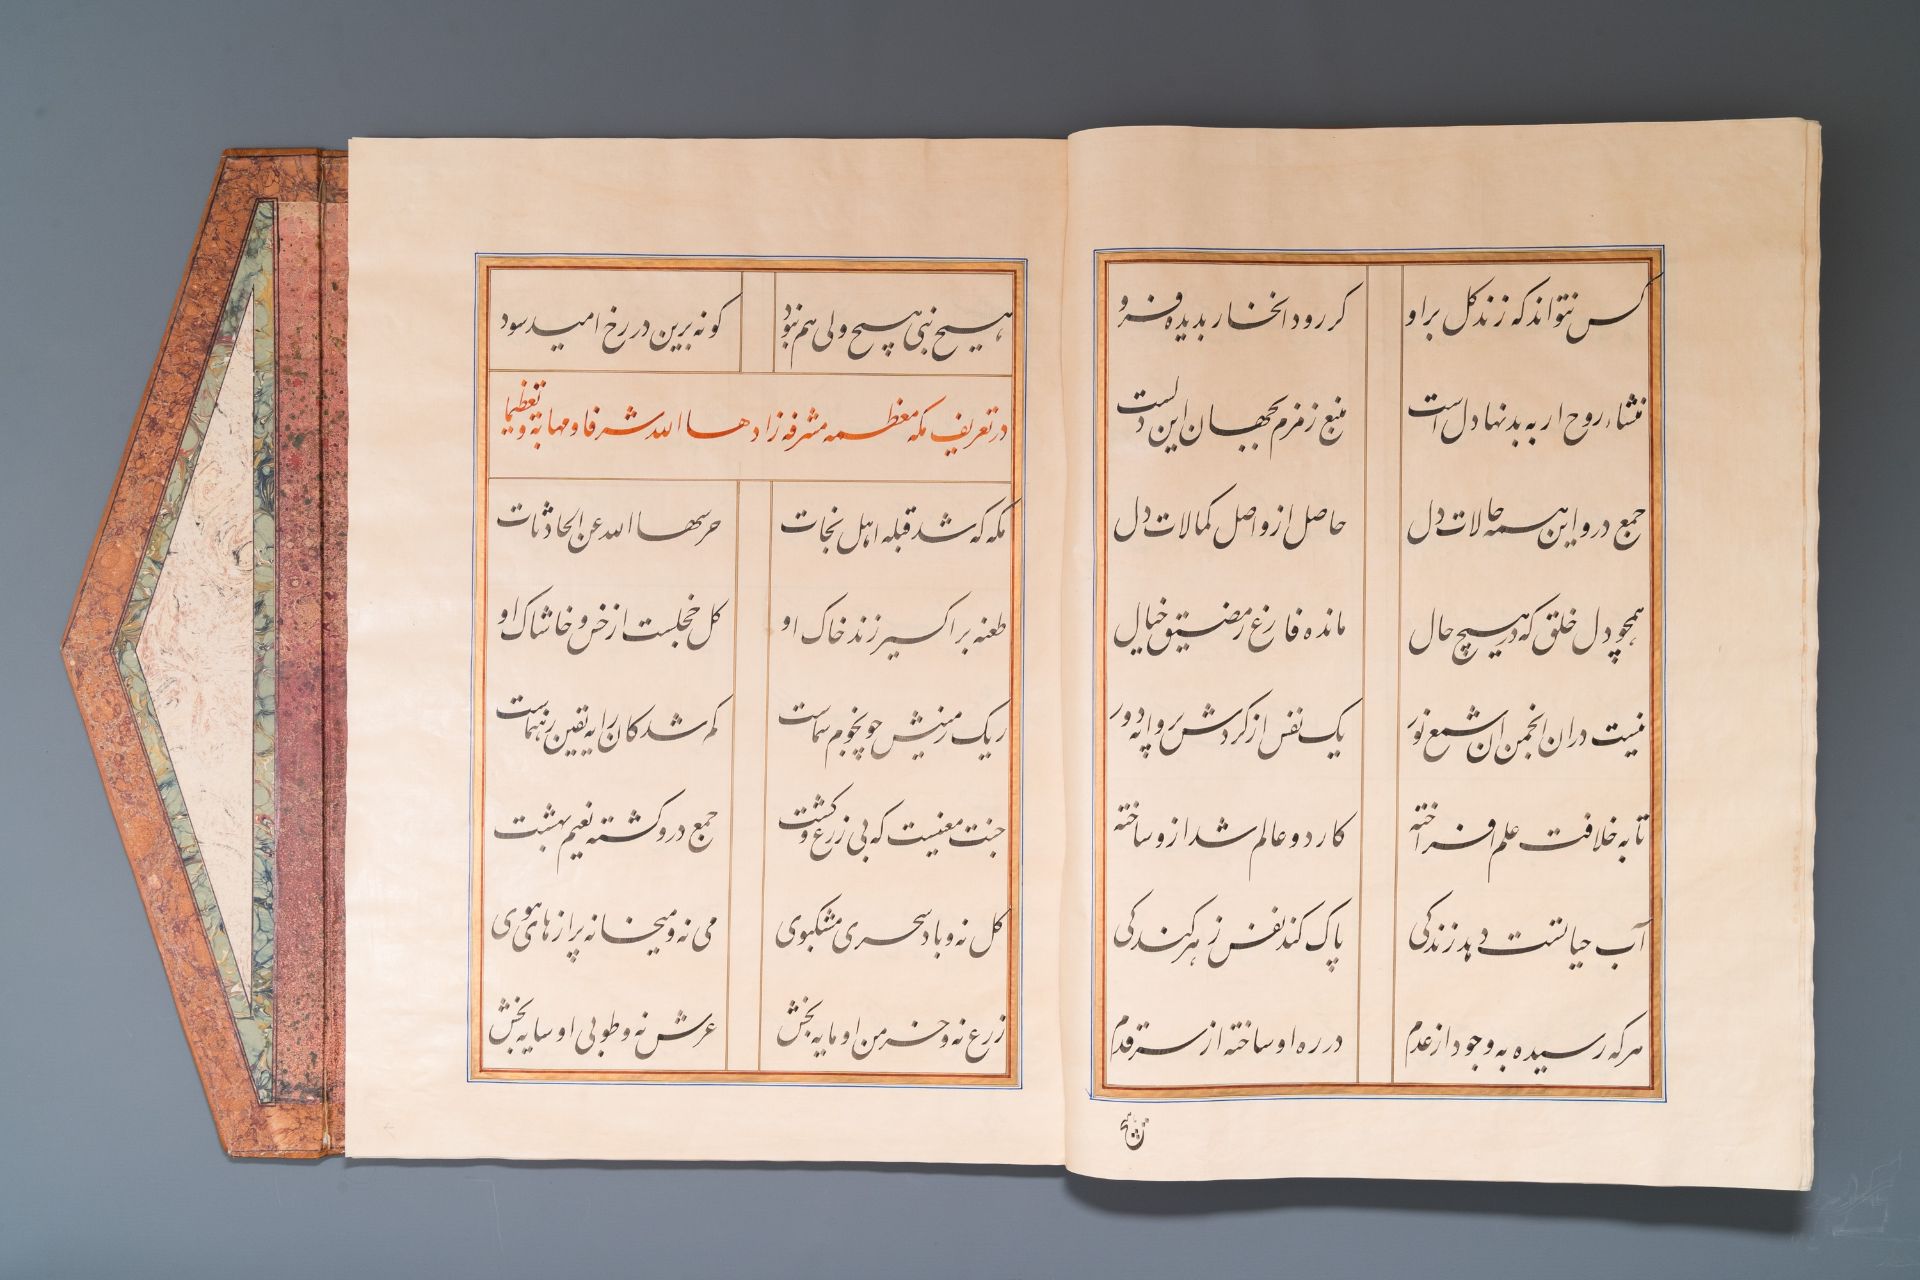 کس نتواند که زند کل براو کر رود انخار بدیده فرو
منشاء روح ار به بدنها دل است منبع زمزم بجهان این دلست
جمع درو این همه حالات دل حاصل ازو اصل کمالات دل
همچو دل خلق که در هیچ حال مانده فارغ ز مضیق خیال
نیست دران انجمن ان شمع نور یک نفس از کردش پروانه دور
تا به خلافت علم افراخته کار دو عالم شد ازو ساخته
آب حیاتست دهد زندکی پاک کند نفس ز هر کندکی
هر که رسیده به وجود از عدم در ره او ساخته از سر قدم
هیچ نبی هیچ ولی هم نبود کو نه برین در رخ امید سود
در تعریف مکه معظمه مشرفه زادها الله شرفا و مهابة و تعظیما
مکه که شد قبله اهل نجات حرسها الله عن الحادثات
طعنه بر اکسیر زند خاک او کل خجلست از خس و خاشاک او
ریک زمینش چو نجوم سماست کم شدکان را به یقین رهنماست
جنت معنیست که بی زرع و کشت جمع درو کشته نعیم بهشت
کل نه و باد سحری مشکبوی می نه و میخانه پر از های هوی
زرع نه و خرمن او مایه بخش عرش نه و طوبی او سایه بخش